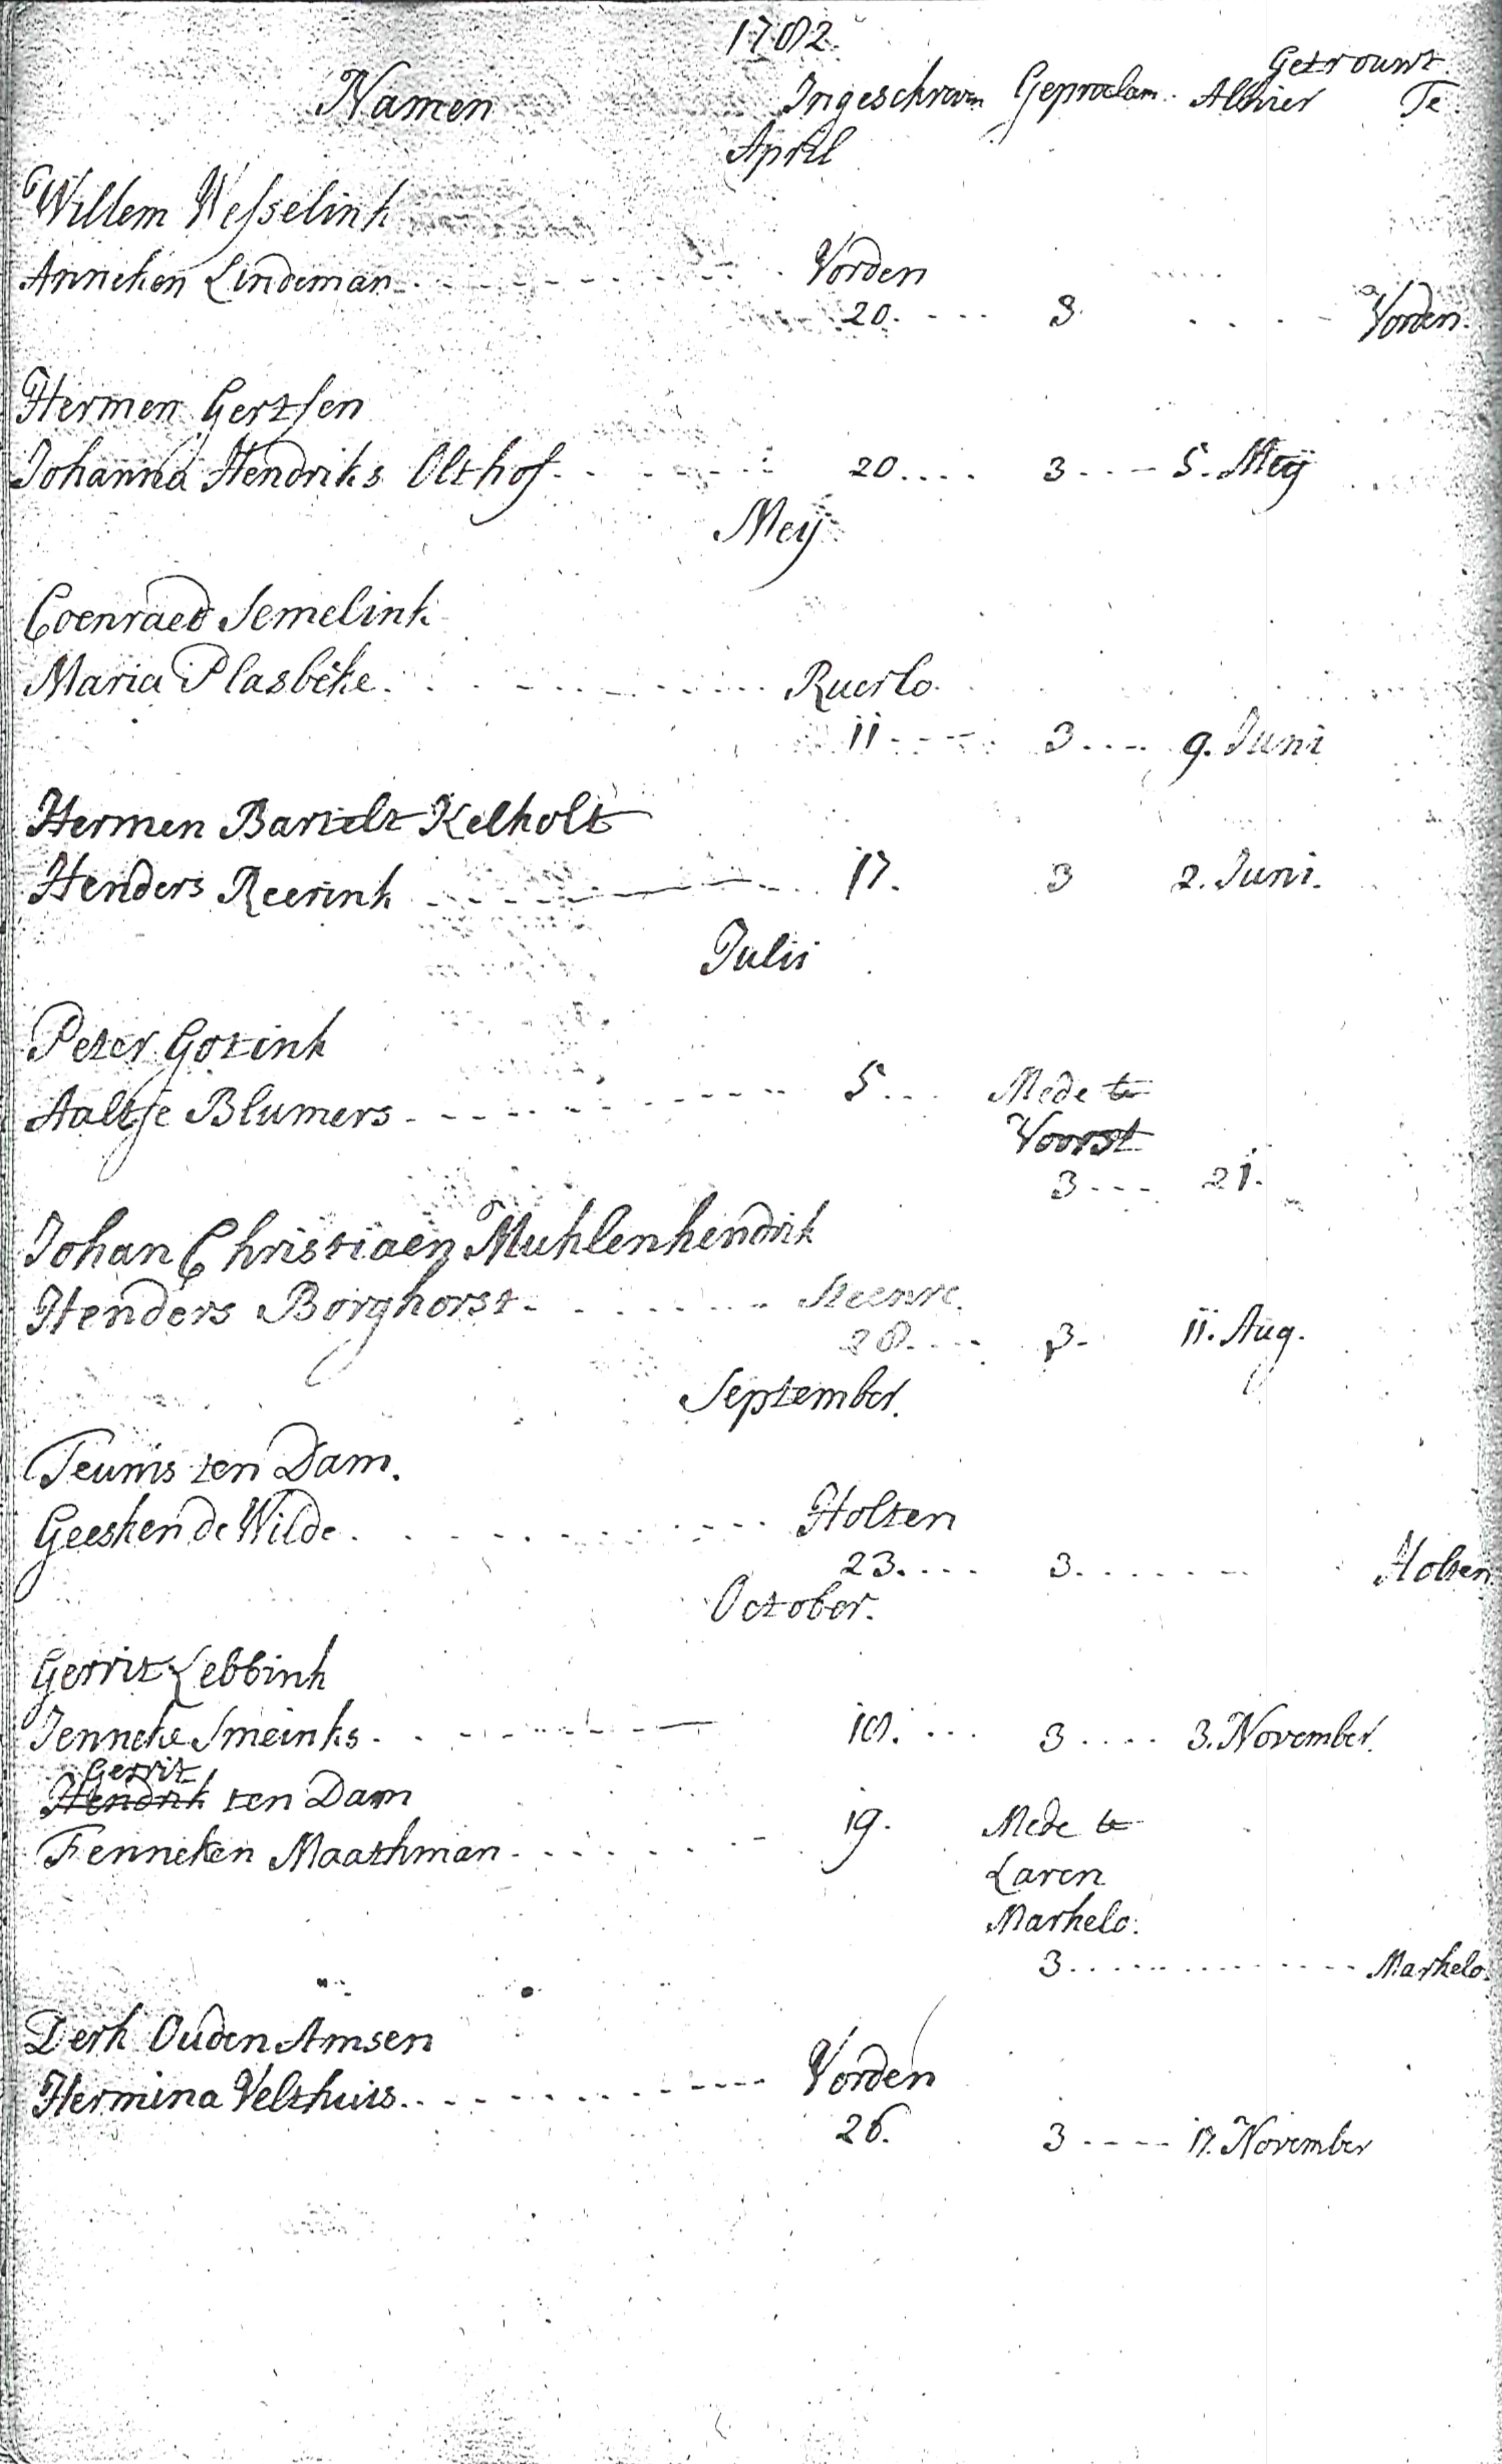 1782.
Getrouwt
Namen Ingeschreven Geproclam. Alhier Te
April
Willem Wesselink
Anneken Lindeman Vorden
20. 3. Vorden.
Hermen Gertsen
Johanna Hendriks Olthof 20 3 5. Meij
Meij
Coenraed Semelink
Maria Plasbeke Ruerlo.
11 3 9. Juni
Hermen Bartelt Kelholt
Henders Reerink 17. 3 2. Juni.
Julii
Peter Gotink
Aaltje Blumers 5 Mede te
Voorst
3 21.
Johan Christiaen Muhlenhendrik
Henders Borghorst Steenre.
28 3 11. Aug.
September.
Teunis ten Dam.
Geesken de Wilde. Holten
23. 3. Holten
October.
Gerrit Lebbink
Jenneke Smeinks. 18. 3 3. November.
Gerrit
Hendrik ten Dam 19. Mede te
Fenneken Maathman Laren
Markelo.
3 Markelo.
Derk Ouden Amsen
Hermina Velthuis Vorden
26. 3 17. November